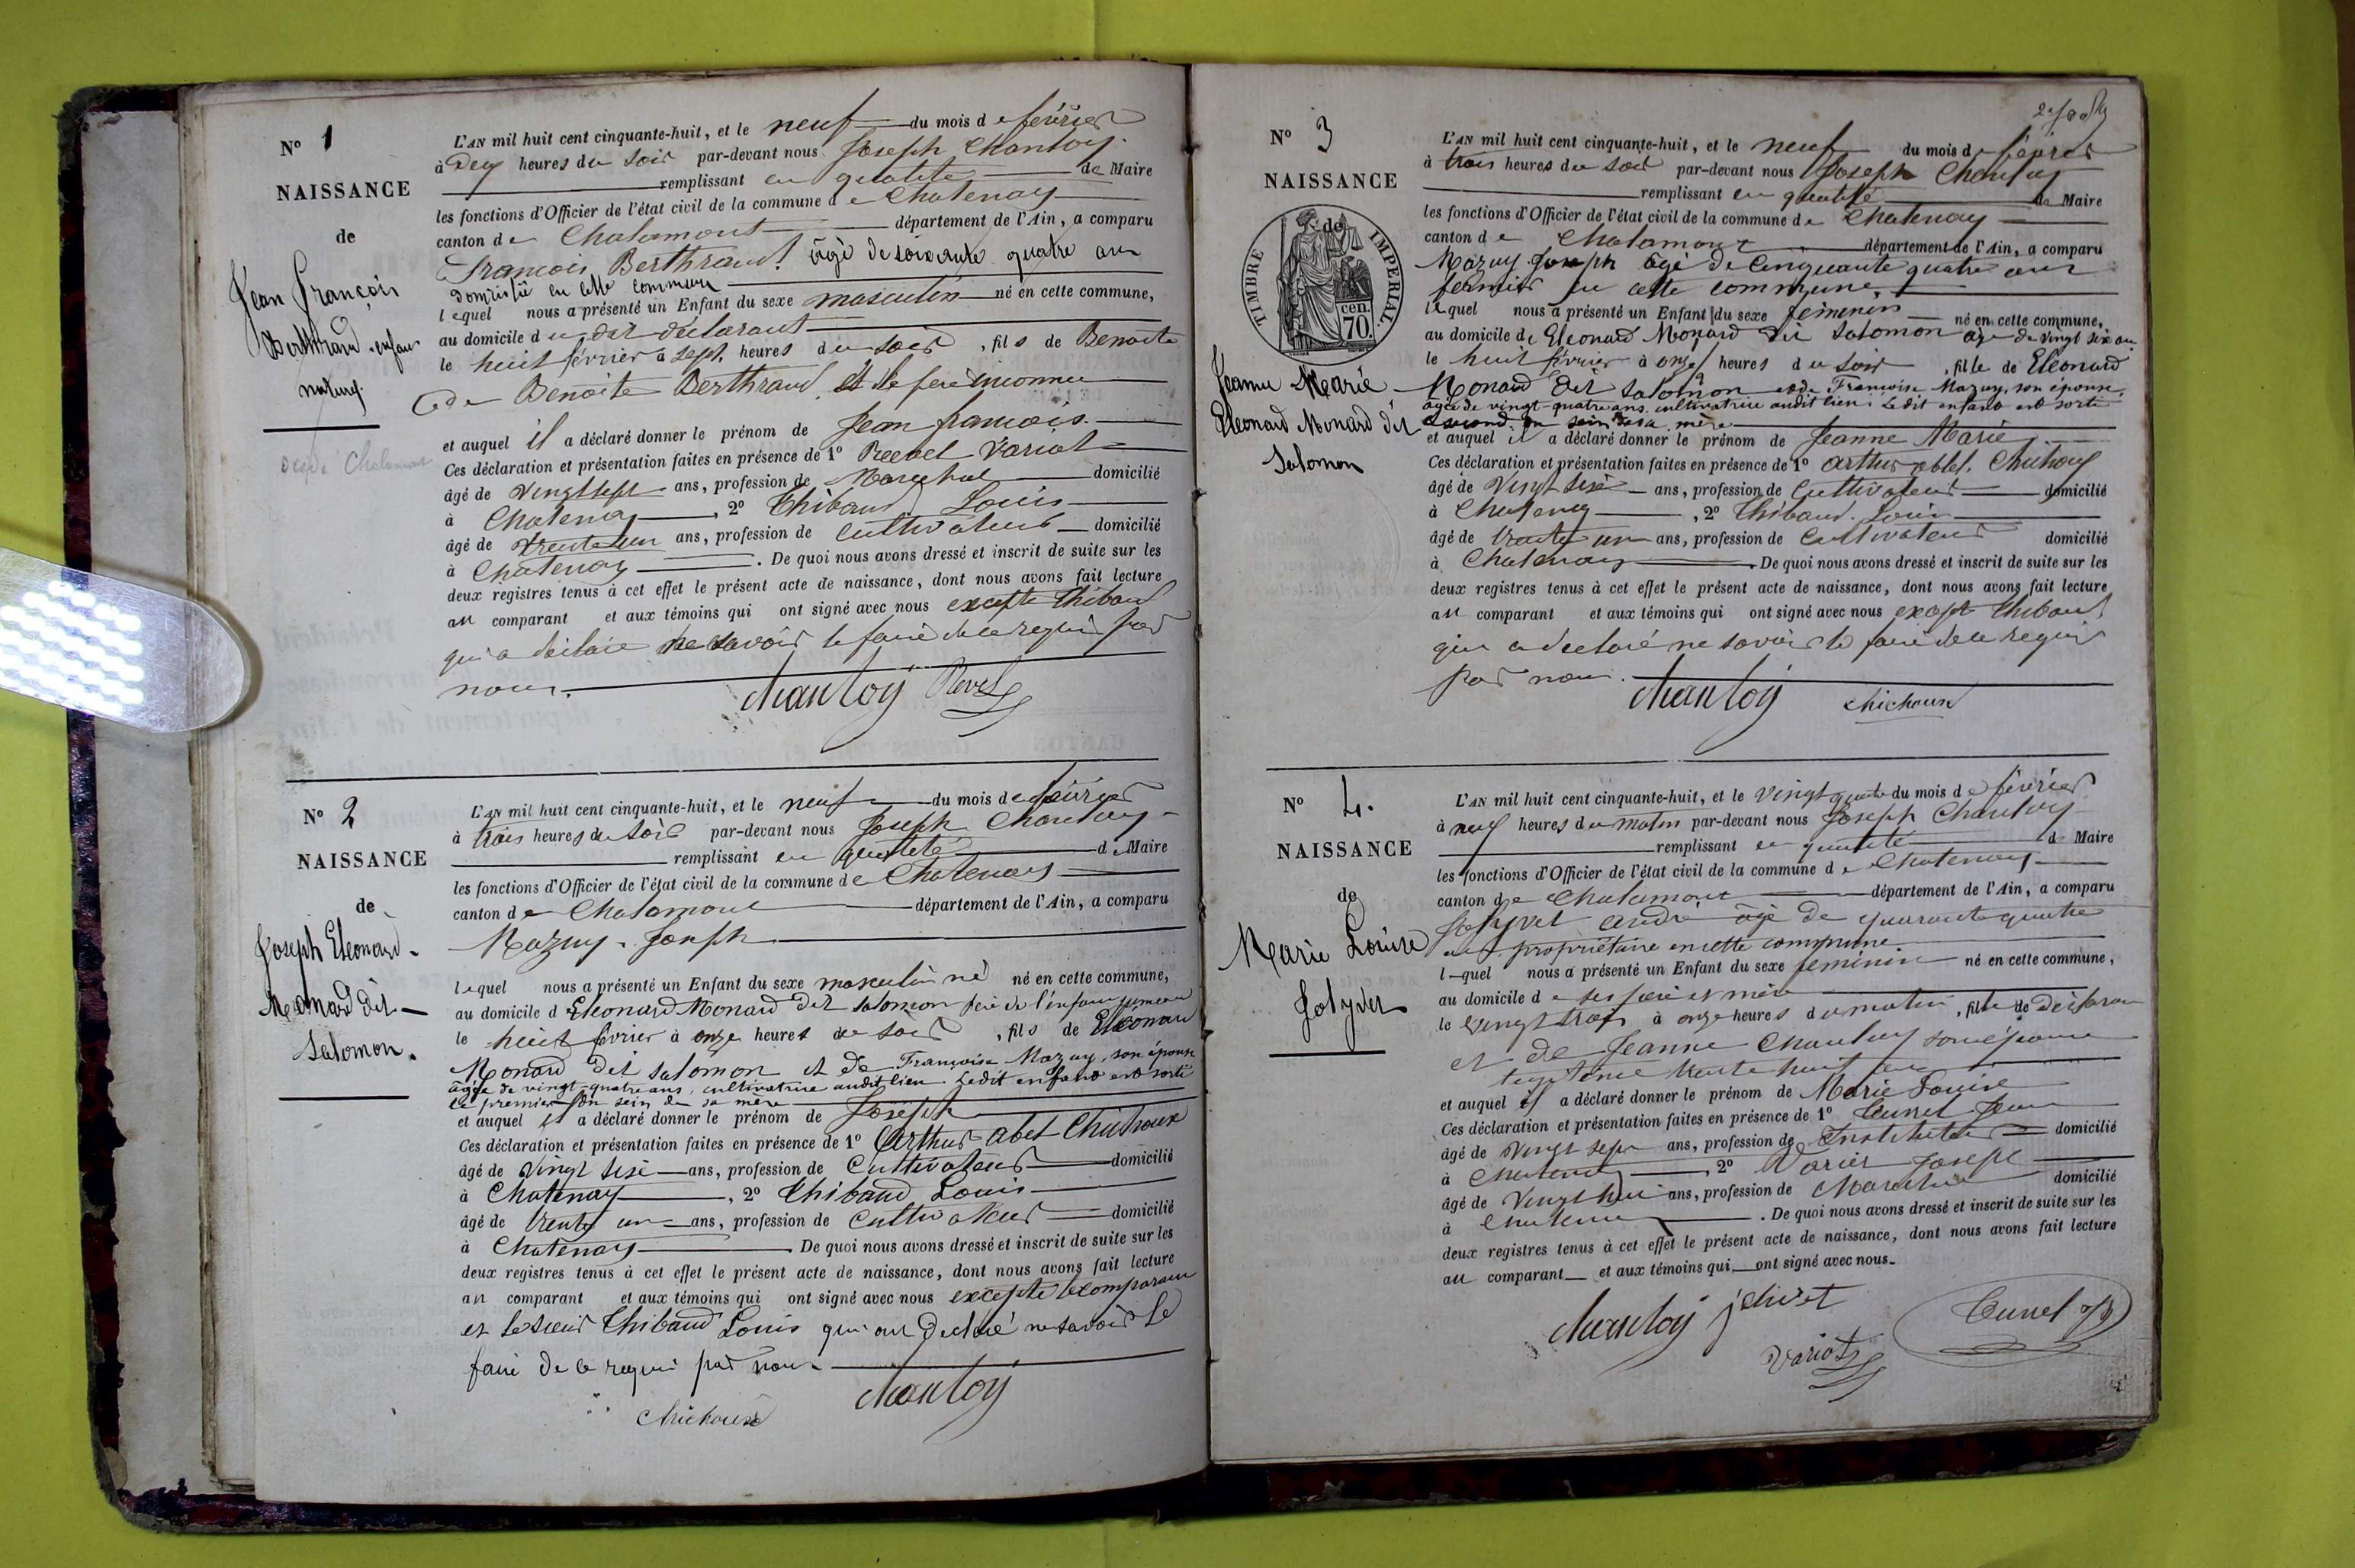 N° 1
NAISSANCE
de
Jean François
Berthraud enfant
naturel
décédé Chalamont
L'AN mil huit cent cinquante-huit, et le neuf du mois de février
à Deux heures du soir par-devant nous Joseph Chanloy
remplissant en qualité de Maire
les fonctions d'Officier de l'état civil de la commune de Chatenay
canton de Chalamont département de l'Ain, a comparu
François Berthraud âgé de soixante quatre ans
domicilié en cette commune
lequel nous a présenté un Enfant du sexe masculin né en cette commune,
au domicile du dit déclarant
le huit février à sept heures du soir, fils de Benoite
de Benoite Berthraud, et de père inconnu
et auquel il a déclaré donner le prénom de Jean françois.
Ces déclaration et présentation faites en présence de 1° Revel Variot
âgé de vingt sept ans, profession de Marechal domicilié
à Chatenay, 2° Thibaud Louis
âgé de trente un ans, profession de cultivateur domicilié
à Chatenay. De quoi nous avons dressé et inscrit de suite sur les
deux registres tenus à cet effet le présent acte de naissance, dont nous avons fait lecture
au comparant et aux témoins qui ont signé avec nous excepte Thibaud
qui a déclaré ne savoir le faire de ce requis par
nous.
Chanloy Revel
N° 2
NAISSANCE
de
Joseph Eleonard
Monard dit
Salomon.
L'AN mil huit cent cinquante-huit, et le neuf du mois de février
à trois heures du soir par-devant nous Joseph Chanloy
remplissant en qualité de Maire
les fonctions d'Officier de l'état civil de la commune de Chatenay
canton de Chalamont département de l'Ain, a comparu
Mazuy Joseph
lequel nous a présenté un Enfant du sexe masculin né né en cette commune,
au domicile d Eleonard Monard dit Salomon père de l'enfant jumeau
le huit février à onze heures du soir, fils de Eleonard
Monard dit Salomon et de Françoise Mazuy, son épouse
âgée de vingt-quatre ans, cultivatrice audit lieu. Ledit enfant est sorti
le premier du sein de sa mère
et auquel il a déclaré donner le prénom de Joseph
Ces déclaration et présentation faites en présence de 1° Arthur Abel Chichoux
âgé de vingt sixe ans, profession de Cultivateur domicilié
à Chatenay, 2° Thibaud Louis
âgé de trente un ans, profession de cultivateur domicilié
à Chatenay. De quoi nous avons dressé et inscrit de suite sur les
deux registres tenus à cet effet le présent acte de naissance, dont nous avons fait lecture
au comparant et aux témoins qui ont signé avec nous excepte le comparant
et le sieur Thibaud Louis qui ont declaré ne savoir le
faire de ce requis par nous
Chanloy
Chichoux
N° 3
NAISSANCE
de
TIMBRE IMPERIAL.
70 cen.
Jeanne Marie
Eleonard Monard dit
Salomon
L'AN mil huit cent cinquante-huit, et le neuf du mois de février
à trois heures du soir par-devant nous Joseph Chanloy
remplissant en qualité de Maire
les fonctions d'Officier de l'état civil de la commune de Chatenay
canton de Chalamont département de l'Ain, a comparu
Mazuy Joseph âgé de Cinquante quatre ans
fermier en cette commune,
lequel nous a présenté un Enfant du sexe féminin né en cette commune,
au domicile de Eleonard Monard dit Salomon âgé de vingt six ans
le huit février à onze heures du soir, fille de Eleonard
Monard dit Salomon et de Françoise Mazuy, son épouse
âgée de vingt-quatre ans, cultivatrice audit lieu. Ledit enfant est sorti
second du sein de sa mère
et auquel il a déclaré donner le prénom de Jeanne Marie
Ces déclaration et présentation faites en présence de 1° Arthur Abel. Chichoux
âgé de Vingt sixe ans, profession de Cultivateur domicilié
à Chatenay, 2° Thibaud Louis
âgé de trente un ans, profession de Cultivateur domicilié
à Chatenay. De quoi nous avons dressé et inscrit de suite sur les
deux registres tenus à cet effet le présent acte de naissance, dont nous avons fait lecture
au comparant et aux témoins qui ont signé avec nous except Thibaud
qui a declaré ne savoir le faire de ce requis
par nous.
Chanloy Chichoux
N° 4.
NAISSANCE
de
Marie Louise
Jolyvet
L'AN mil huit cent cinquante-huit, et le vingt quatre du mois de février
à neuf heures du matin par-devant nous Joseph Chanloy
remplissant en qualité de Maire
les fonctions d'Officier de l'état civil de la commune de Chatenay
canton de Chalamont département de l'Ain, a comparu
Jolyvet andré âgé de quarante quatre
ans propriétaire en cette commune.
lequel nous a présenté un Enfant du sexe féminin né en cette commune,
au domicile de ses père et mère
le vingt trois à onze heures du matin, fille de déclarant
et de Jeanne Chanloy son épouse
légitime trente huit ans
et auquel il a déclaré donner le prénom de Marie Louise
Ces déclaration et présentation faites en présence de 1° Cunel Jean
âgé de Vingt sept ans, profession de Instituteur domicilié
à Chatenay, 2° Variot Joseph
âgé de Vingt huit ans, profession de Marechal domicilié
à Chatenay. De quoi nous avons dressé et inscrit de suite sur les
deux registres tenus à cet effet le présent acte de naissance, dont nous avons fait lecture
au comparant et aux témoins qui ont signé avec nous.
Chanloy jolivet
Variot
Cunel